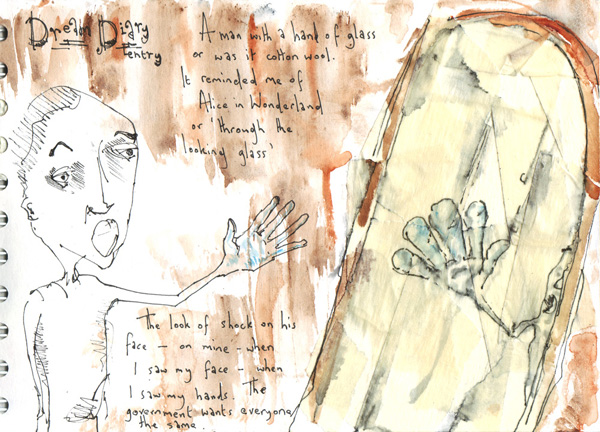 Dream Diary
entry
A man with a hand of glass
or was it cotton wool.
It reminded me of
Alice in Wonderland
or 'through the
looking glass'
The look of shock on his
face – on mine – when
I saw my face – when
I saw my hands. The
government wants everyone
the same.